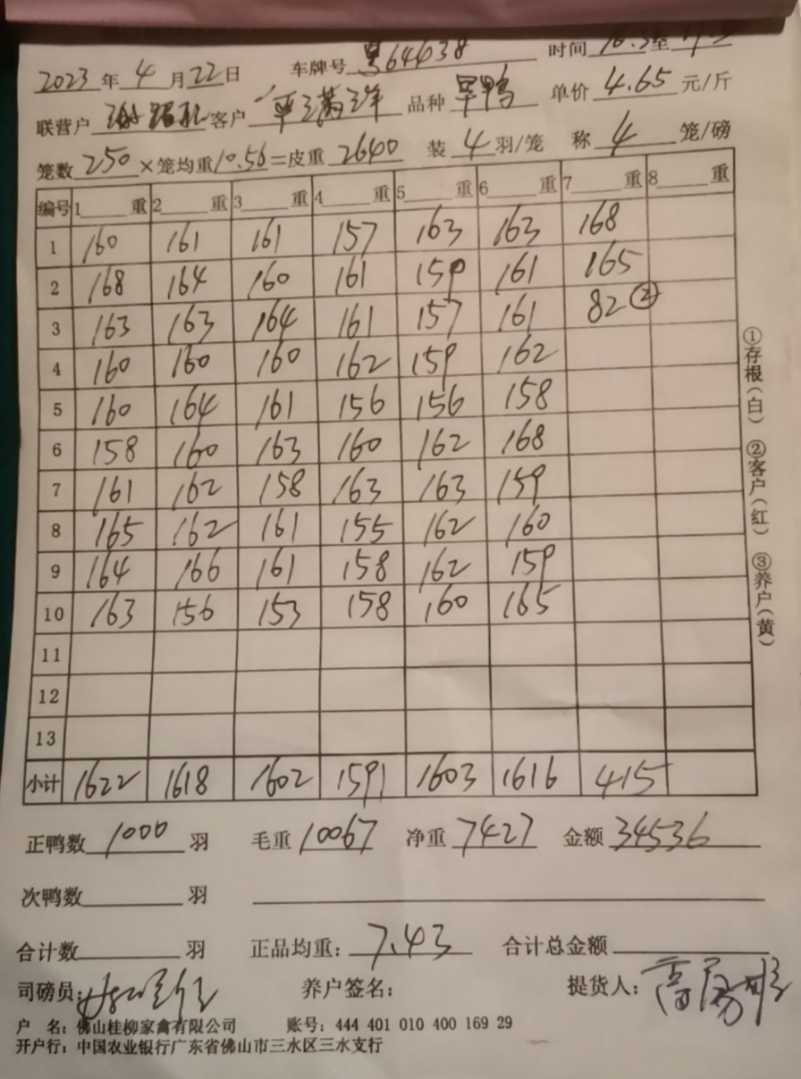 2023年4月22日 车牌号 64638 时间 至
联营户 客户 品种 旱鸭 单价 4.65 元/斤
笼数 250 ×笼均重 10.56 =皮重 2640 装 4 羽/笼 称 4 笼/磅
编号 1 重 2 重 3 重 4 重 5 重 6 重 7 重 8 重
1 160 161 161 157 163 163 168
2 168 164 160 161 159 161 165
3 163 163 164 161 157 161 82 ②
4 160 160 160 162 159 162
5 160 164 161 156 156 158
6 158 160 163 160 162 168
7 161 162 158 163 163 159
8 165 162 161 155 162 160
9 164 166 161 158 162 159
10 163 156 153 158 160 165
11
12
13
小计 1622 1618 1602 1591 1603 1616 415
正鸭数 1000 羽 毛重 10067 净重 7427 金额 34536
次鸭数 羽
合计数 羽 正品均重: 7.43 合计总金额
司磅员: 养户签名: 提货人:
户 名: 佛山桂柳家禽有限公司 账号: 444 401 010 400 169 29
开户行: 中国农业银行广东省佛山市三水区三水支行
①存根(白) ②客户(红) ③养户(黄)